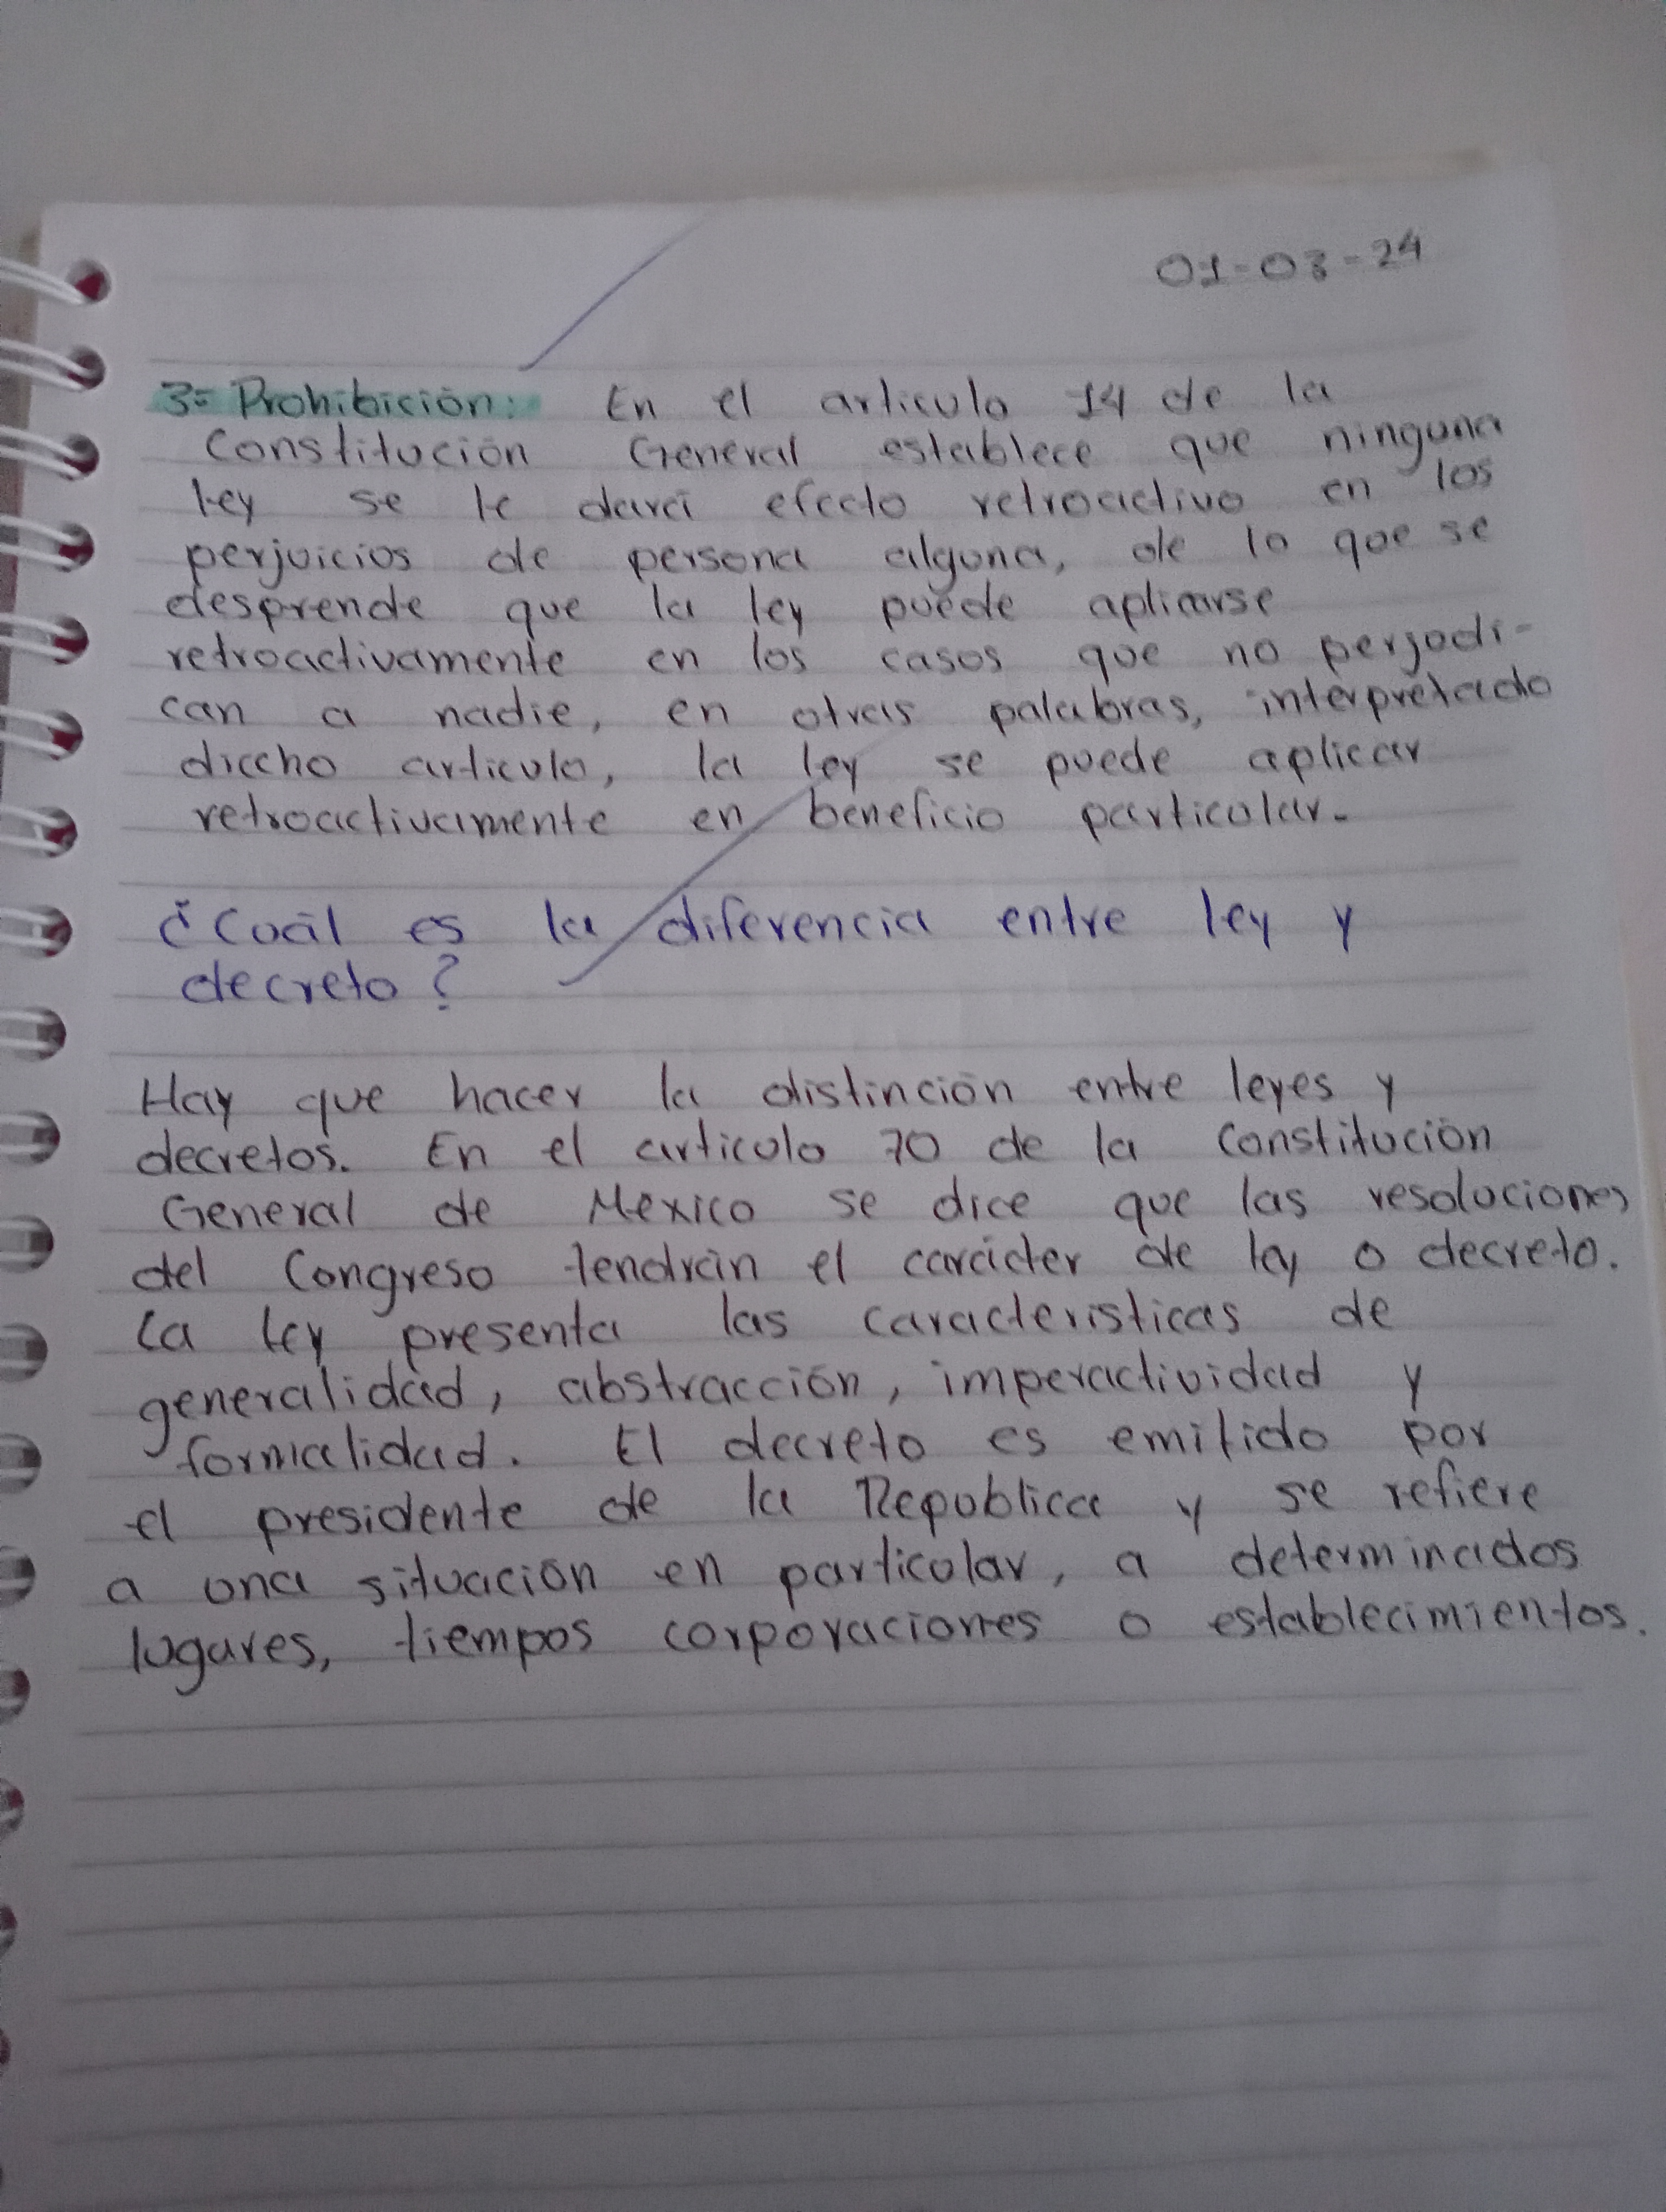 01-03-24
3= Prohibición: En el articulo 14 de la
Constitución General establece que ninguna
ley se le dará efecto retroactivo en los
perjuicios de persona alguna, de lo que se
desprende que la ley puede aplicarse
retroactivamente en los casos que no perjudi-
can a nadie, en otras palabras, interpretado
diccho articulo, la ley se puede aplicar
retroactivamente en beneficio particular.
¿Cuál es la diferencia entre ley y
decreto?
Hay que hacer la distinción entre leyes y
decretos. En el articulo 70 de la Constitución
General de México se dice que las resoluciones
del Congreso tendrán el carácter de ley o decreto.
La ley presenta las características de
generalidad, abstracción, imperactividad y
formalidad. El decreto es emitido por
el presidente de la Republica y se refiere
a una situación en particular, a determinados
lugares, tiempos corporaciones o establecimientos.